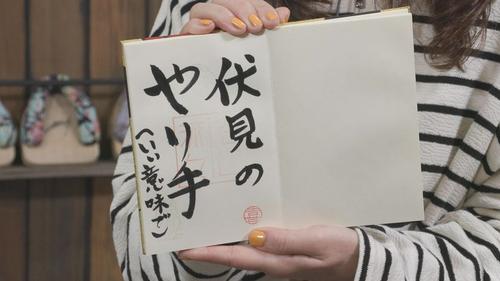 伏見の
やり手
（いい意味で）